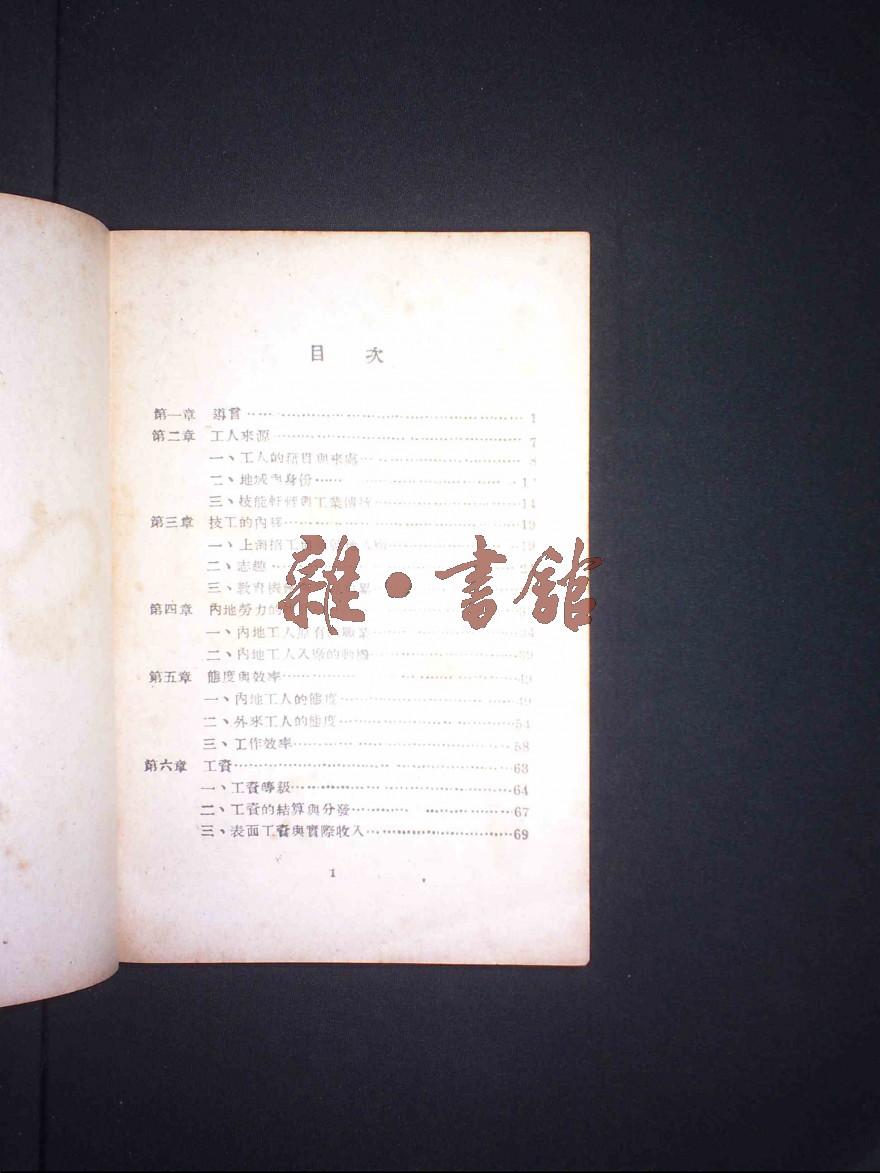 目 次
第一章 導言……1
第二章 工人來源……7
一、工人的籍貫與來處……8
二、地域與身份……
三、技能……與工業……14
第三章 技工的內移……19
一、上海招工……19
二、志趣……
三、教育……
第四章 內地勞力的
一、內地工人原有……職業……34
二、內地工人入廠的動機……39
第五章 態度與效率……49
一、內地工人的態度……49
二、外來工人的態度……54
三、工作效率……58
第六章 工資……63
一、工資等級……64
二、工資的結算與分發……67
三、表面工資與實際收入……69
1
雜·書館